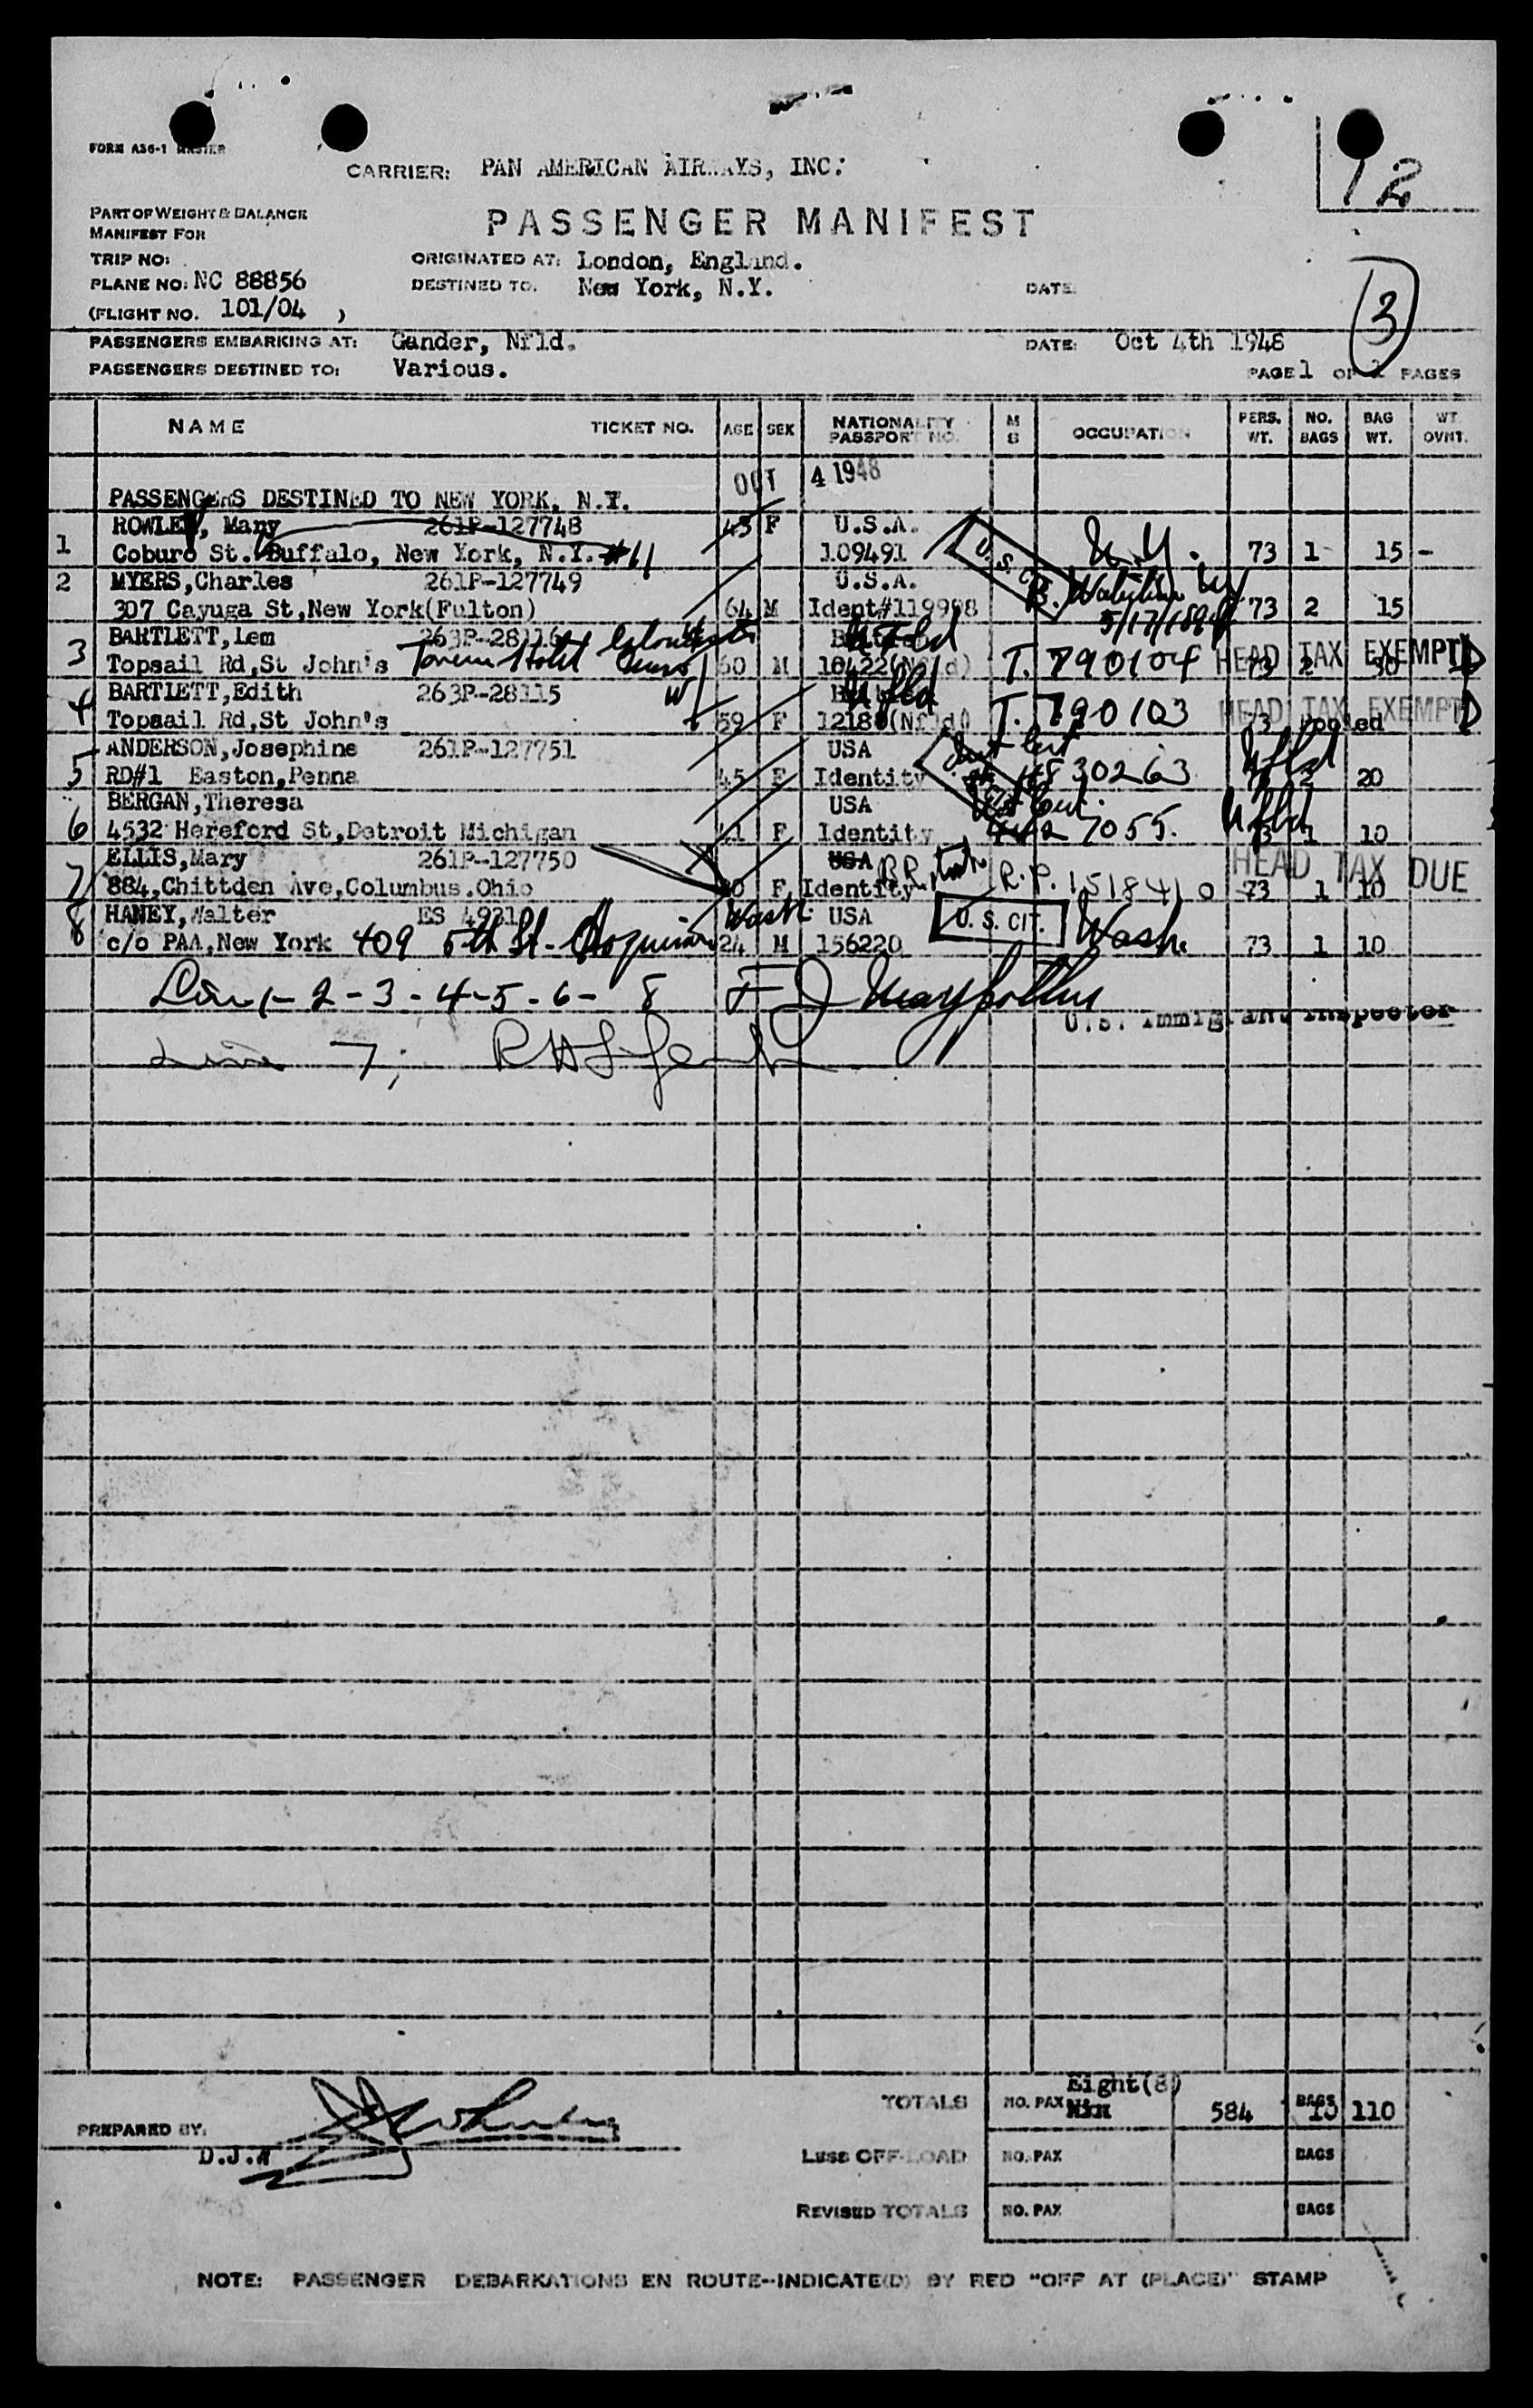 FORM A36-1 MASTER
12
CARRIER: PAN AMERICAN AIRWAYS, INC.
PART OF WEIGHT & BALANCE
MANIFEST FOR
PASSENGER MANIFEST
TRIP NO:
ORIGINATED AT: London, England.
PLANE NO: NC 88856
DESTINED TO. New York, N.Y.
DATE
(FLIGHT NO. 101/04 )
3
PASSENGERS EMBARKING AT: Gander, Nfld.
DATE: Oct 4th 1948
PASSENGERS DESTINED TO: Various.
PAGE 1 OF PAGES
NAME TICKET NO. AGE SEX NATIONALITY PASSPORT NO. M S OCCUPATION PERS. WT. NO. BAGS BAG WT. WT. OVNT.
OCT 4 1948
PASSENGERS DESTINED TO NEW YORK, N.Y.
ROWLEY, Mary 261P-127748 43 F U.S.A.
1 Coburg St. Buffalo, New York, N.Y. #11 109491 U.S. CIT. N.Y. 73 1 15 -
2 MYERS,Charles 261P-127749 U.S.A.
307 Cayuga St,New York(Fulton) 64 M Ident#119998 5/17/1884 73 2 15
BARTLETT,Lem 263P-28116 Nfld
3 Topsail Rd,St John's Tavern Hotel 60 M 18422(Nfld) T. 790104 HEAD TAX EXEMPT 73 2 30
BARTLETT,Edith 263P-28115 Nfld
4 Topsail Rd,St John's 59 F 12180(Nfld) T. 790103 HEAD TAX EXEMPT 73 pooled
ANDERSON,Josephine 261P-127751 USA
5 RD#1 Easton,Penna 45 F Identity 830263 Nfld 2 20
BERGAN,Theresa USA
6 4532 Hereford St,Detroit Michigan 41 F Identity 7055. Nfld 73 1 10
ELLIS,Mary 261P-127750 USA HEAD TAX DUE
7 884,Chittden Ave,Columbus.Ohio F Identity R.P. 1518410 73 1 10
HANEY,Walter ES 4931 Wash. USA
8 c/o PAA,New York 409 5th St- Hoquiam 24 M 156220 U.S. CIT. Wash. 73 1 10
Line 1-2-3-4-5-6- 8
U.S. Immigrant Inspector
Line 7;
TOTALS NO. PAX Eight(8) 584 BAGS 10 110
PREPARED BY.
D.J.
LESS OFF-LOAD NO. PAX BAGS
REVISED TOTALS NO. PAX BAGS
NOTE: PASSENGER DEBARKATIONS EN ROUTE--INDICATE(D) BY RED "OFF AT (PLACE)" STAMP